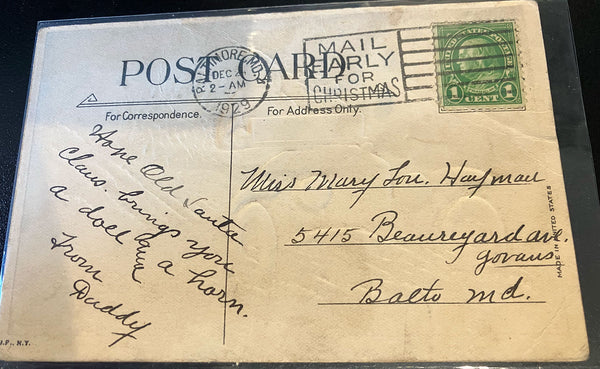 POST CARD
BALTIMORE, MD.
DEC
2-AM
1929
MAIL
EARLY
FOR
CHRISTMAS
UNITED STATES POSTAGE
1 CENT 1
For Correspondence.
For Address Only.
Hope Old Santa
Claus. brings you
a doll and a horn.
From
Daddy
Miss Mary Lou. Hayman
5415 Beauregard ave.
Govans
Balto Md.
MADE IN UNITED STATES
N.Y.